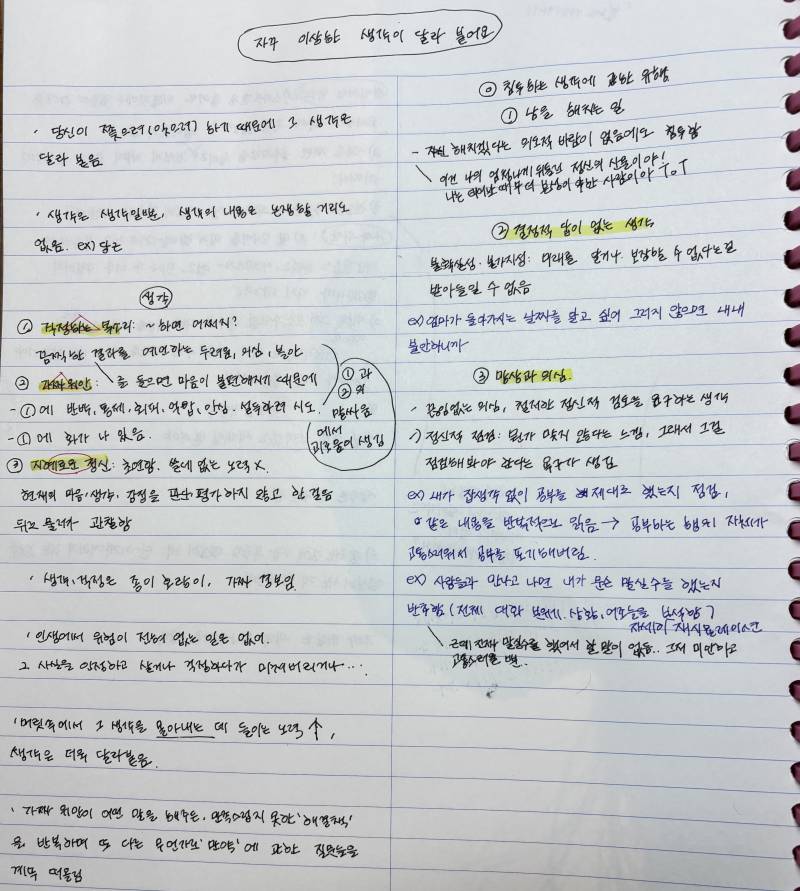 자꾸 이상한 생각이 달라 붙어요
· 당신이 쫓으려(잊으려) 하기 때문에 그 생각은
달라 붙음
· 생각은 생각일뿐, 생각의 내용은 논쟁할 거리도
없음. ex) 당근
생각
① 걱정하는 목소리: ~하면 어쩌지?
끔찍한 결과를 예언하는 두려움, 의심, 불안
② 가짜위안: ①을 들으면 마음이 불편해지기 때문에
- ①에 반박, 통제, 회피, 억압, 안심. 설득하려 시도.
- ①에 화가 나 있음.
①과
②의
말싸움
에서
괴로움이 생김
③ 지혜로운 정신: 초연함. 쓸데 없는 노력 X.
현재의 마음, 생각, 감정을 판단, 평가하지 않고 한 걸음
뒤로 물러나 관찰함
· 생각, 걱정은 종이 호랑이, 가짜 경보임.
· 인생에서 위험이 전혀 없는 일은 없어.
그 사실을 인정하고 살거나 걱정하다가 미쳐버리거나 ....
· 머릿속에서 그 생각을 몰아내는 데 들이는 노력 ↑,
생각은 더욱 달라붙음.
· 가짜 위안이 어떤 말을 해주든, 만족스럽지 못한 '해결책'
을 반복하며 또 다른 무언가로 '만약'에 관한 질문들을
계속 떠올림
◎ 침투하는 생각에 관한 유형
① 남을 해치는 일
- 해치겠다는 의도적 바람이 없음에도 침투함
이건 나의 엄청나게 뒤틀린 정신의 산물이야!
나는 태어날 때부터 본성이 악한 사람이야 ㅜㅇㅜ
② 결정적 답이 없는 생각
불확실성·불가지성: 미래를 알거나 보장할 수 없다는걸
받아들일 수 없음
ex) 엄마가 돌아가시는 날짜를 알고 싶어 그러지 않으면 내내
불안하니까
③ 망상과 의심.
- 끊임없는 의심, 철저한 정신적 검토를 요구하는 생각
정신적 점검: 뭔가 맞지 않다는 느낌, 그래서 그걸
점검해봐야 한다는 욕구가 생김
ex) 내가 잡생각 없이 공부를 제대로 했는지 점검,
같은 내용을 반복적으로 읽음 → 공부하는 행위 자체가
고통스러워서 공부를 포기해버림.
ex) 사람들과 만나고 나면 내가 무슨 말실수를 했는지
반추함 (전체 대화 상황, 어조들을 분석함)
자세히 재시뮬레이션
근데 진짜 말실수를 했어서 할 말이 없음.. 그저 미안하고
고통스러울 뿐..